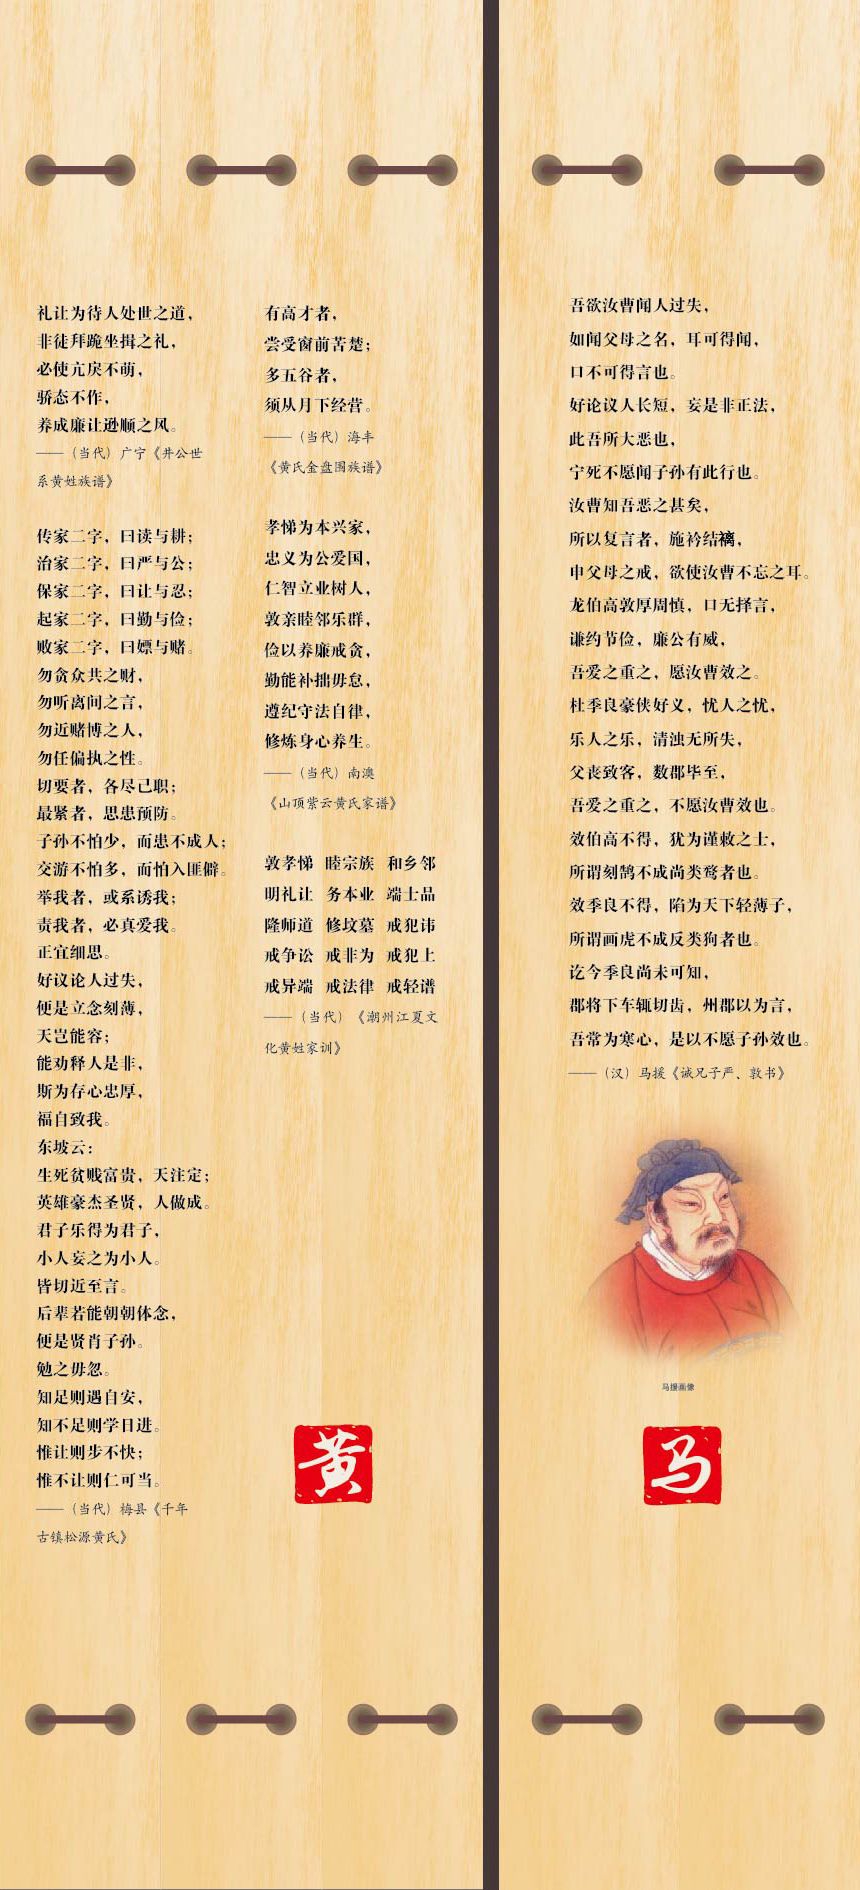 礼让为待人处世之道，
非徒拜跪坐揖之礼，
必使亢戾不萌，
骄态不作，
养成廉让逊顺之风。
——（当代）广宁《井公世
系黄姓族谱》
传家二字，曰读与耕；
治家二字，曰严与公；
保家二字，曰让与忍；
起家二字，曰勤与俭；
败家二字，曰嫖与赌。
勿贪众共之财，
勿听离间之言，
勿近赌博之人，
勿任偏执之性。
切要者，各尽己职；
最紧者，思患预防。
子孙不怕少，而患不成人；
交游不怕多，而怕入匪僻。
举我者，或系诱我；
责我者，必真爱我。
正宜细思。
好议论人过失，
便是立念刻薄，
天岂能容；
能劝释人是非，
斯为存心忠厚，
福自致我。
东坡云：
生死贫贱富贵，天注定；
英雄豪杰圣贤，人做成。
君子乐得为君子，
小人妄之为小人。
皆切近至言。
后辈若能朝朝体念，
便是贤肖子孙。
勉之毋忽。
知足则遇自安，
知不足则学日进。
惟让则步不快；
惟不让则仁可当。
——（当代）梅县《千年
古镇松源黄氏》
有高才者，
尝受窗前苦楚；
多五谷者，
须从月下经营。
——（当代）海丰
《黄氏金盘围族谱》
孝悌为本兴家，
忠义为公爱国，
仁智立业树人，
敦亲睦邻乐群，
俭以养廉戒贪，
勤能补拙毋怠，
遵纪守法自律，
修炼身心养生。
——（当代）南澳
《山顶紫云黄氏家谱》
敦孝悌 睦宗族 和乡邻
明礼让 务本业 端士品
隆师道 修坟墓 戒犯讳
戒争讼 戒非为 戒犯上
戒异端 戒法律 戒轻谱
——（当代）《潮州江夏文
化黄姓家训》
黄
吾欲汝曹闻人过失，
如闻父母之名，耳可得闻，
口不可得言也。
好论议人长短，妄是非正法，
此吾所大恶也，
宁死不愿闻子孙有此行也。
汝曹知吾恶之甚矣，
所以复言者，施衿结褵，
申父母之戒，欲使汝曹不忘之耳。
龙伯高敦厚周慎，口无择言，
谦约节俭，廉公有威，
吾爱之重之，愿汝曹效之。
杜季良豪侠好义，忧人之忧，
乐人之乐，清浊无所失，
父丧致客，数郡毕至，
吾爱之重之，不愿汝曹效也。
效伯高不得，犹为谨敕之士，
所谓刻鹄不成尚类鹜者也。
效季良不得，陷为天下轻薄子，
所谓画虎不成反类狗者也。
讫今季良尚未可知，
郡将下车辄切齿，州郡以为言，
吾常为寒心，是以不愿子孙效也。
——（汉）马援《诫兄子严、敦书》
马援画像
马